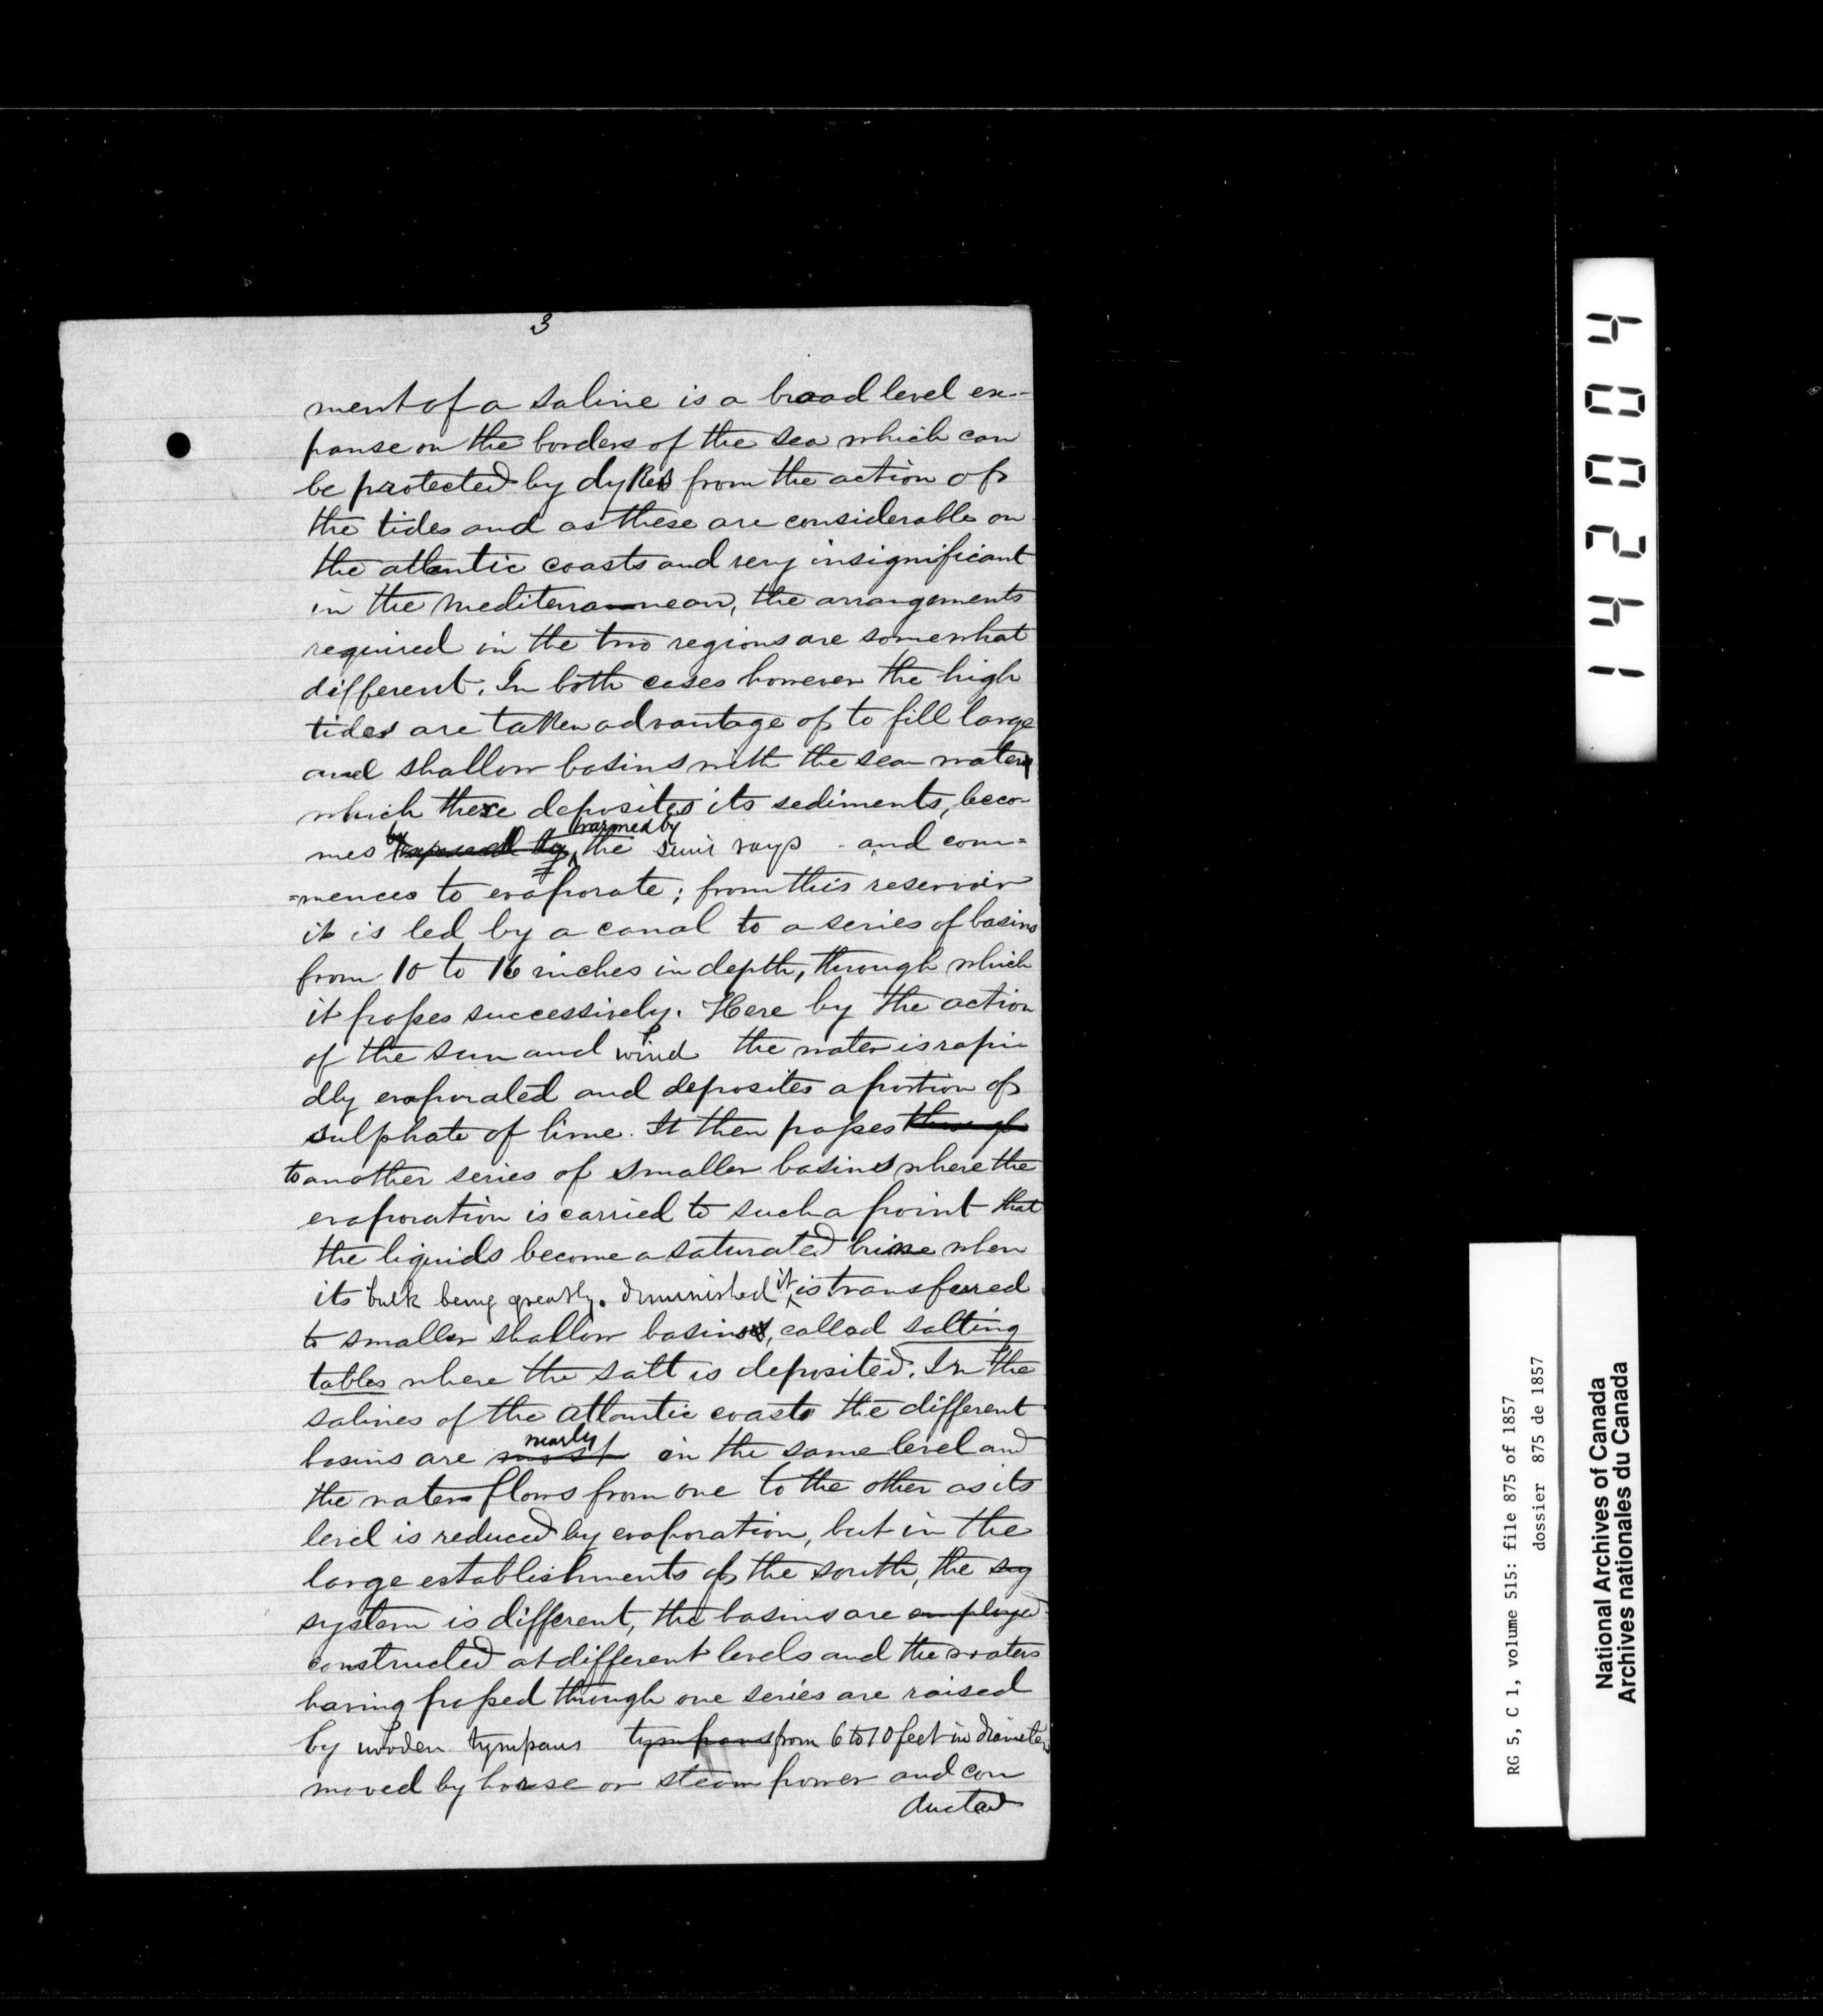 3
ment of a saline is a broad level ex-
panse on the borders of the sea which can
be protected by dykes from the action of
the tides and as these are considerable on
the atlantic coasts and very insignificant
in the Mediterranean, the arrangements
required in the two regions are somewhat
different. In both cases however the high
tides are taken advantage of to fill large
and shallow basins with the sea water
which there deposites its sediments, beco-
warmed by
mes by exposed to the sun's rays and com=
=mences to evaporate; from this reservoir
it is led by a canal to a series of basins
from 10 to 16 inches in depth, through which
it passes successively. Here by the action
of the sun and wind the water is rapi
dly evaporated and deposites a portion of
sulphate of lime. It then passes through
to another series of smaller basins where the
evaporation is carried to such a point that
the liquids become a saturated brine when
its bulk being greatly diminished it is transferred
to smaller shallow basins, called salting
tables where the salt is deposited. In the
salines of the Atlantic coasts the different
nearly
basins are most in the same level and
the waters flows from one to the other as its
level is reduced by evaporation, but in the
large establishments of the south, the sy
system is different, the basins are employed
constructed at different levels and the waters
having passed through one series are raised
by wooden tympans tympans from 6 to 10 feet in diameter
moved by horse or steam power and con
ducted
142004
RG 5, C 1, volume 515: file 875 of 1857
dossier 875 de 1857
National Archives of Canada
Archives nationales du Canada